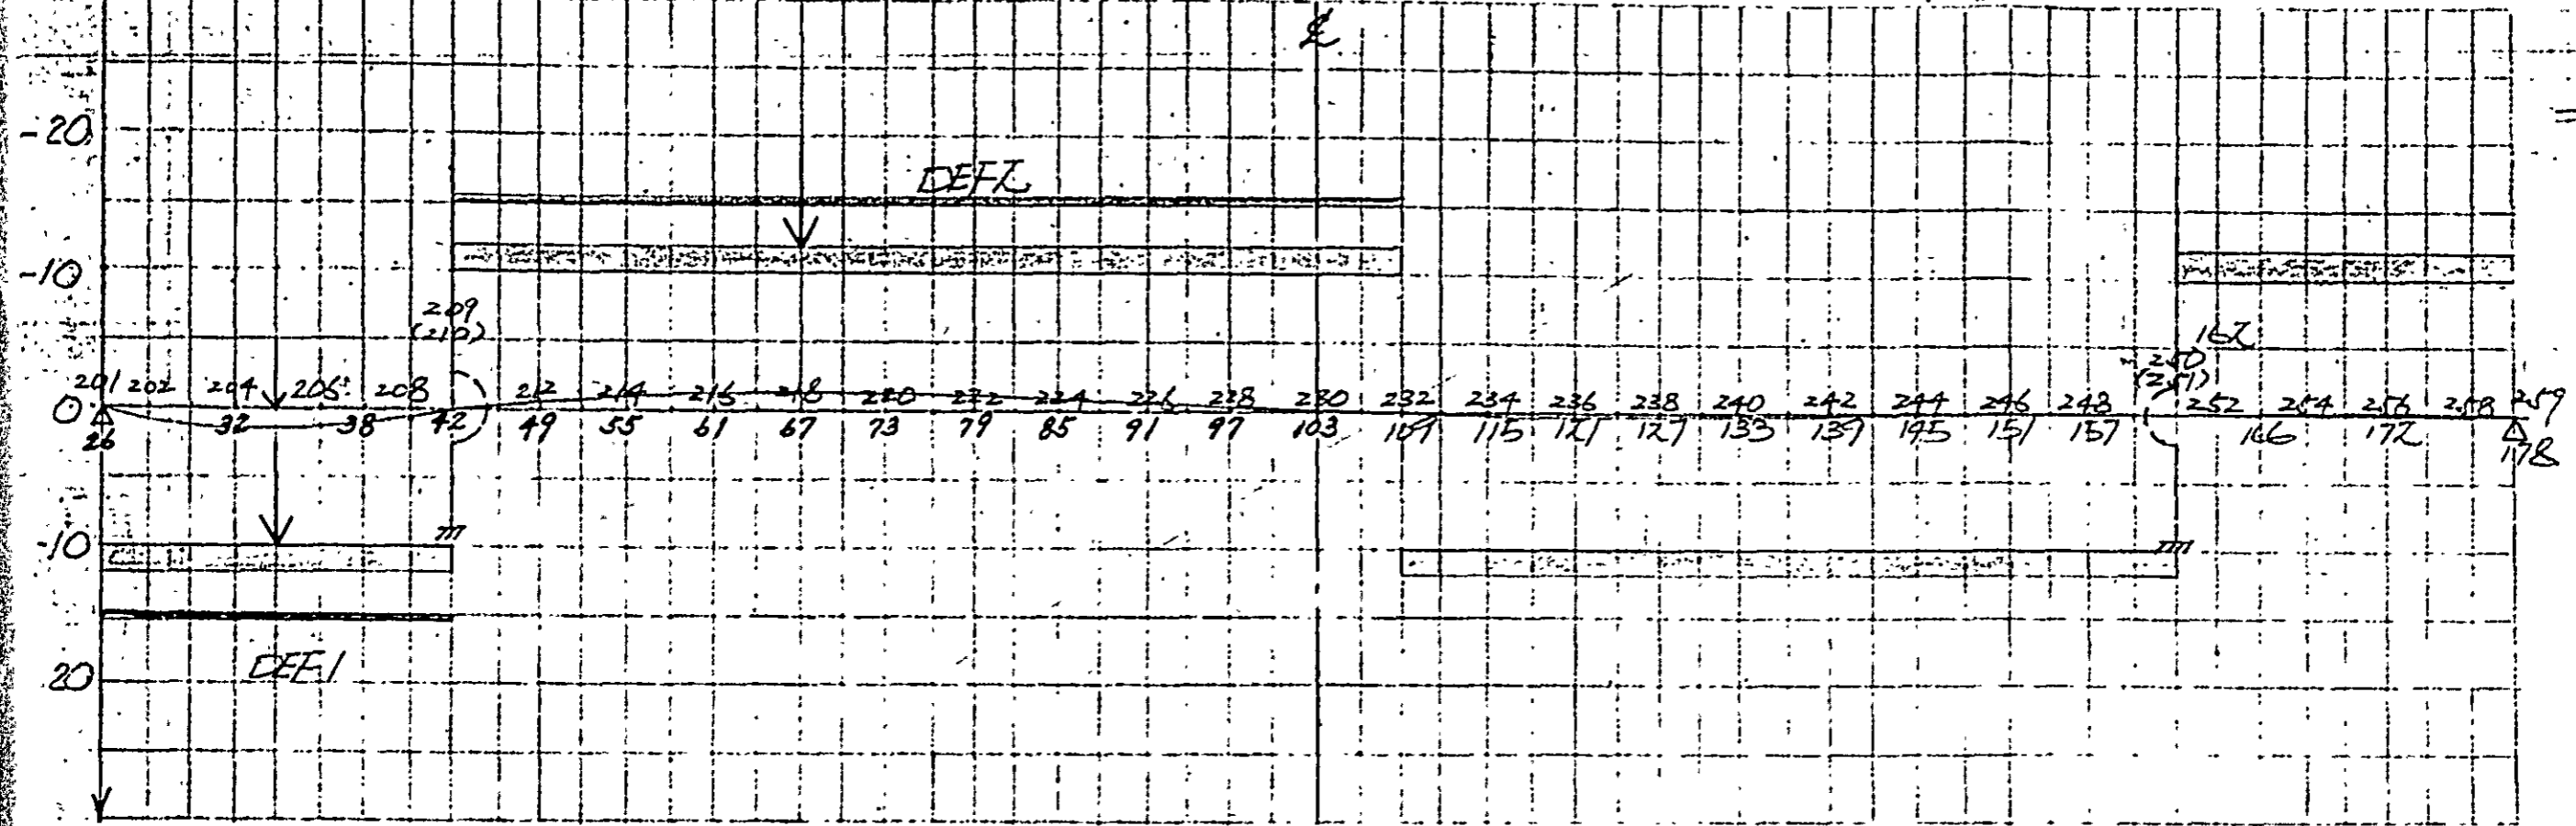 ℄
-20
DEF2
-10
209
(210)
162
250
(251)
201 202 204 206 208 212 214 216 218 220 222 224 226 228 230 232 234 236 238 240 242 244 246 248 252 254 256 258 259
0
26 32 38 42 49 55 61 67 73 79 85 91 97 103 109 115 121 127 133 139 145 151 157 166 172 178
-10
20
DEF1